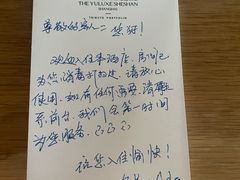 THE YULUXE SHESHAN
SHANGHAI
TRIBUTE PORTFOLIO
尊敬的客人：您好！
欢迎入住本酒店，房间已
为您消毒到位，请放心
使用，如有任何需要，请
联系前台，我们会第一时间
为您服务。
祝您入住愉快！